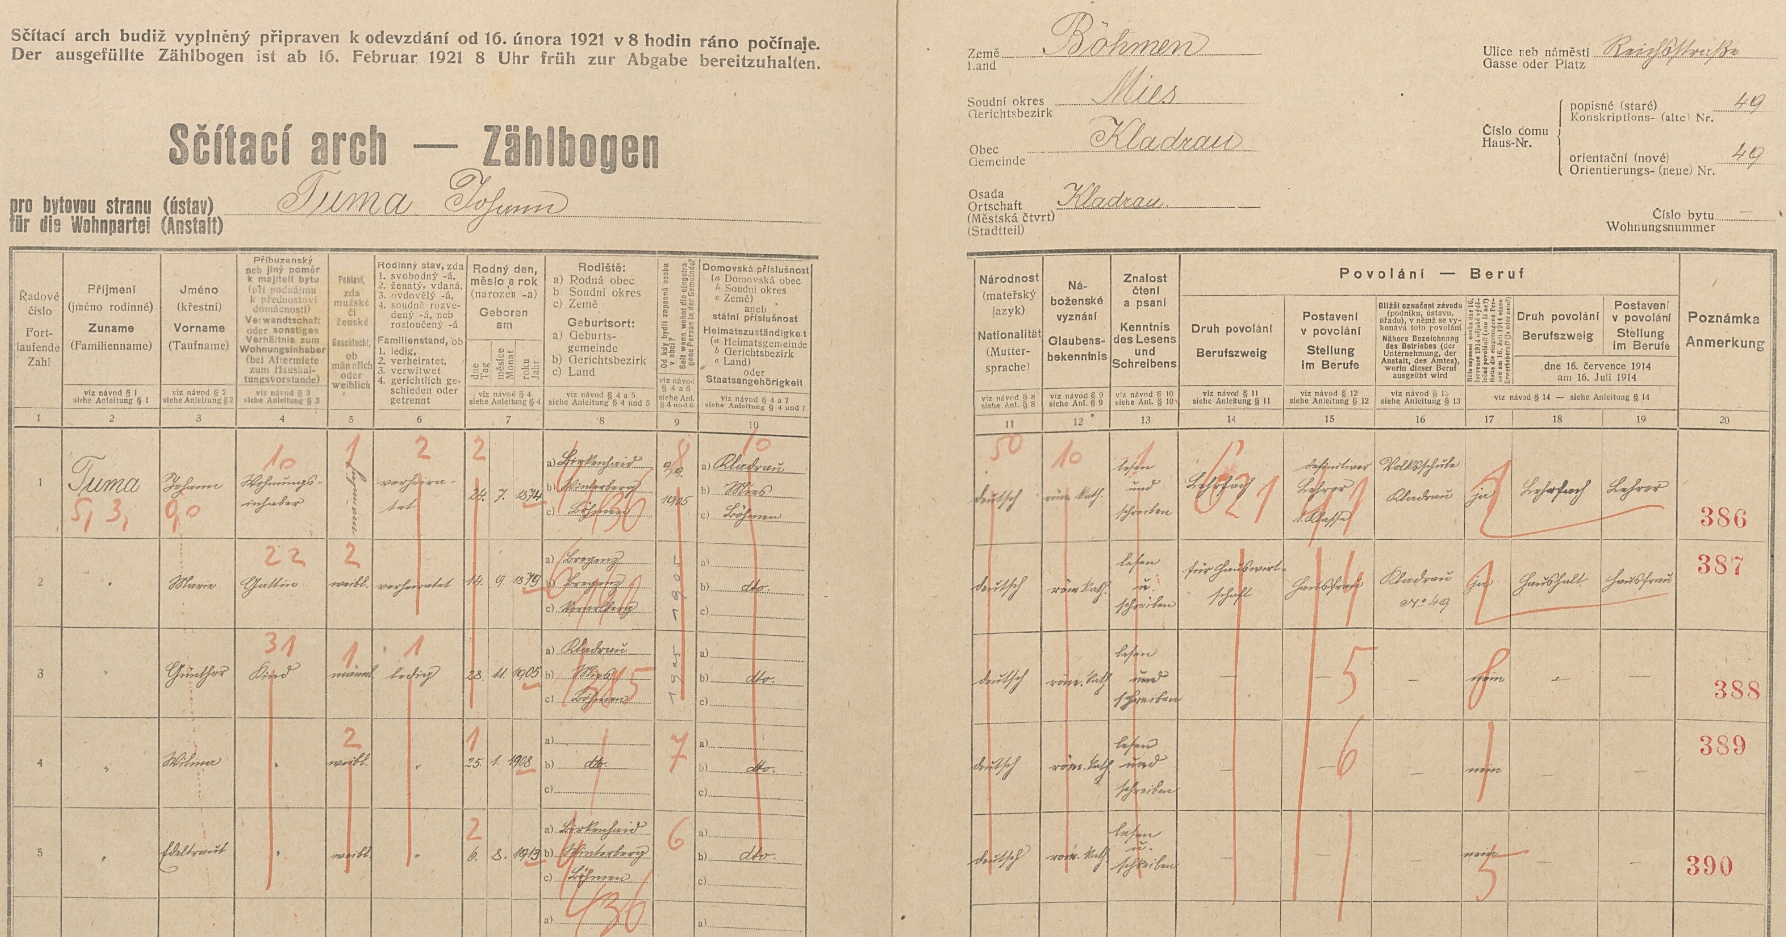 Sčítací arch budiž vyplněný připraven k odevzdání od 16. února 1921 v 8 hodin ráno počínaje.
Der ausgefüllte Zählbogen ist ab 16. Februar 1921 8 Uhr früh zur Abgabe bereitzuhalten.
Sčítací arch — Zählbogen
pro bytovou stranu (ústav)
für die Wohnpartei (Anstalt)
Tuma Johann
Země
Land
Böhmen
Soudní okres
Gerichtsbezirk
Mies
Obec
Gemeinde
Kladrau
Osada
Ortschaft
(Městská čtvrť)
(Stadtteil)
Kladrau
Ulice neb náměstí
Gasse oder Platz
Reichsstraße
Číslo domu
Haus-Nr.
popisné (staré)
Konskriptions- (alte) Nr.
49
orientační (nové)
Orientierungs- (neue) Nr.
49
Číslo bytu —
Wohnungsnummer
Řadové
číslo
Fort-
laufende
Zahl
Příjmení
(jméno rodinné)
Zuname
(Familienname)
viz návod § 1
siehe Anleitung § 1
Jméno
(křestní)
Vorname
(Taufname)
viz návod § 2
siehe Anleitung § 2
Příbuzenský
neb jiný poměr
k majiteli bytu
(při podnájmu
k přednostovi
domácnosti)
Verwandtschaft
oder sonstiges
Verhältnis zum
Wohnungsinhaber
(bei Aftermiete
zum Haushal-
tungsvorstande)
viz návod § 3
siehe Anleitung § 3
Pohlaví,
zda
mužské
či
ženské
Geschlecht,
ob
männlich
oder
weiblich
Rodinný stav, zda
1. svobodný -á,
2. ženatý, vdaná,
3. ovdovělý -á,
4. soudně rozve-
dený -á, neb
rozloučený -á
Familienstand, ob
1. ledig,
2. verheiratet,
3. verwitwet
4. gerichtlich ge-
schieden oder
getrennt
Rodný den,
měsíc a rok
(narozen -a)
Geboren
am
dne
Tag
měsíce
Monat
roku
Jahr
viz návod § 4
siehe Anleitung § 4
Rodiště:
a) Rodná obec
b) Soudní okres
c) Země
Geburtsort:
a) Geburts-
gemeinde
b) Gerichtsbezirk
c) Land
viz návod § 4 a 5
siehe Anleitung § 4 und 5
Od kdy bydlí zapsaná osoba
v obci?
Seit wann wohnt die eingetra-
gene Person in der Gemeinde?
viz návod
§ 4 a 6
siehe Anl.
§ 4 und 6
Domovská příslušnost
(a Domovská obec
b Soudní okres
c Země)
aneb
státní příslušnost
Heimatszuständigkeit
(a Heimatsgemeinde
b Gerichtsbezirk
c Land)
oder
Staatsangehörigkeit
viz návod § 4 a 7
siehe Anleitung § 4 und 7
Národnost
(mateřský
jazyk)
Nationalität
(Mutter-
sprache)
viz návod § 8
siehe Anl. § 8
Ná-
boženské
vyznání
Glaubens-
bekenntnis
viz návod § 9
siehe Anl. § 9
Znalost
čtení
a psaní
Kenntnis
des Lesens
und
Schreibens
viz návod § 10
siehe Anl. § 10
Povolání — Beruf
Druh povolání
Berufszweig
viz návod § 11
siehe Anleitung § 11
Postavení
v povolání
Stellung
im Berufe
viz návod § 12
siehe Anleitung § 12
Bližší označení závodu
(podniku, ústavu,
úřadu), v němž se vy-
konává toto povolání
Nähere Bezeichnung
des Betriebes (der
Unternehmung, der
Anstalt, des Amtes),
worin dieser Beruf
ausgeübt wird
viz návod § 13
siehe Anleitung § 13
Druh povolání
Berufszweig
Postavení
v povolání
Stellung
im Berufe
dne 16. července 1914
am 16. Juli 1914
viz návod § 14 — siehe Anleitung § 14
Poznámka
Anmerkung
1 2 3 4 5 6 7 8 9 10 11 12 13 14 15 16 17 18 19 20
10 1 2 2 8 10 50 10 1 621
1 Tuma Johann Wohnungs-
inhaber verheira-
tet 24. 7. 1874
a) Birkenhaid
b) Winterberg
c) Böhmen
9/9.
1905
a) Kladrau
b) Mies
c) Böhmen
deutsch röm. kath. lesen
und
schreiben
Lehrfach definitiver
Lehrer
I. Klasse
Volksschule
Kladrau
ja Lehrfach Lehrer
386
5, 3, 90
22 2
2 " Marie Gattin weibl. verheiratet 14. 9. 1879
a) Bregenz
b) Bregenz
c) Vorarlberg
1905
a)
b) dto.
c)
deutsch röm. kath. lesen
u.
schreiben
für Hauswirt-
schaft
Hausfrau Kladrau
No 49
ja Haushalt Hausfrau
387
31 1 1
3 " Günther Kind männl. ledig 23. 11. 1905
a) Kladrau
b) Mies
c) Böhmen
1905
a)
b) dto.
c)
deutsch röm. kath. lesen
und
schreiben
— 5 — nein — —
388
2 1 7
4 " Wilma " weibl. " 25. 1. 1908
a)
b) dto.
c)
a)
b) dto.
c)
deutsch röm. kath. lesen
und
schreiben
— 6 — nein — —
389
2 6
5 " Edeltraut " weibl. " 6. 8. 1913
a) Birkenhaid
b) Winterberg
c) Böhmen
a)
b) dto.
c)
deutsch röm. kath. lesen
u.
schreiben
— — — nein — —
390
a)
a)